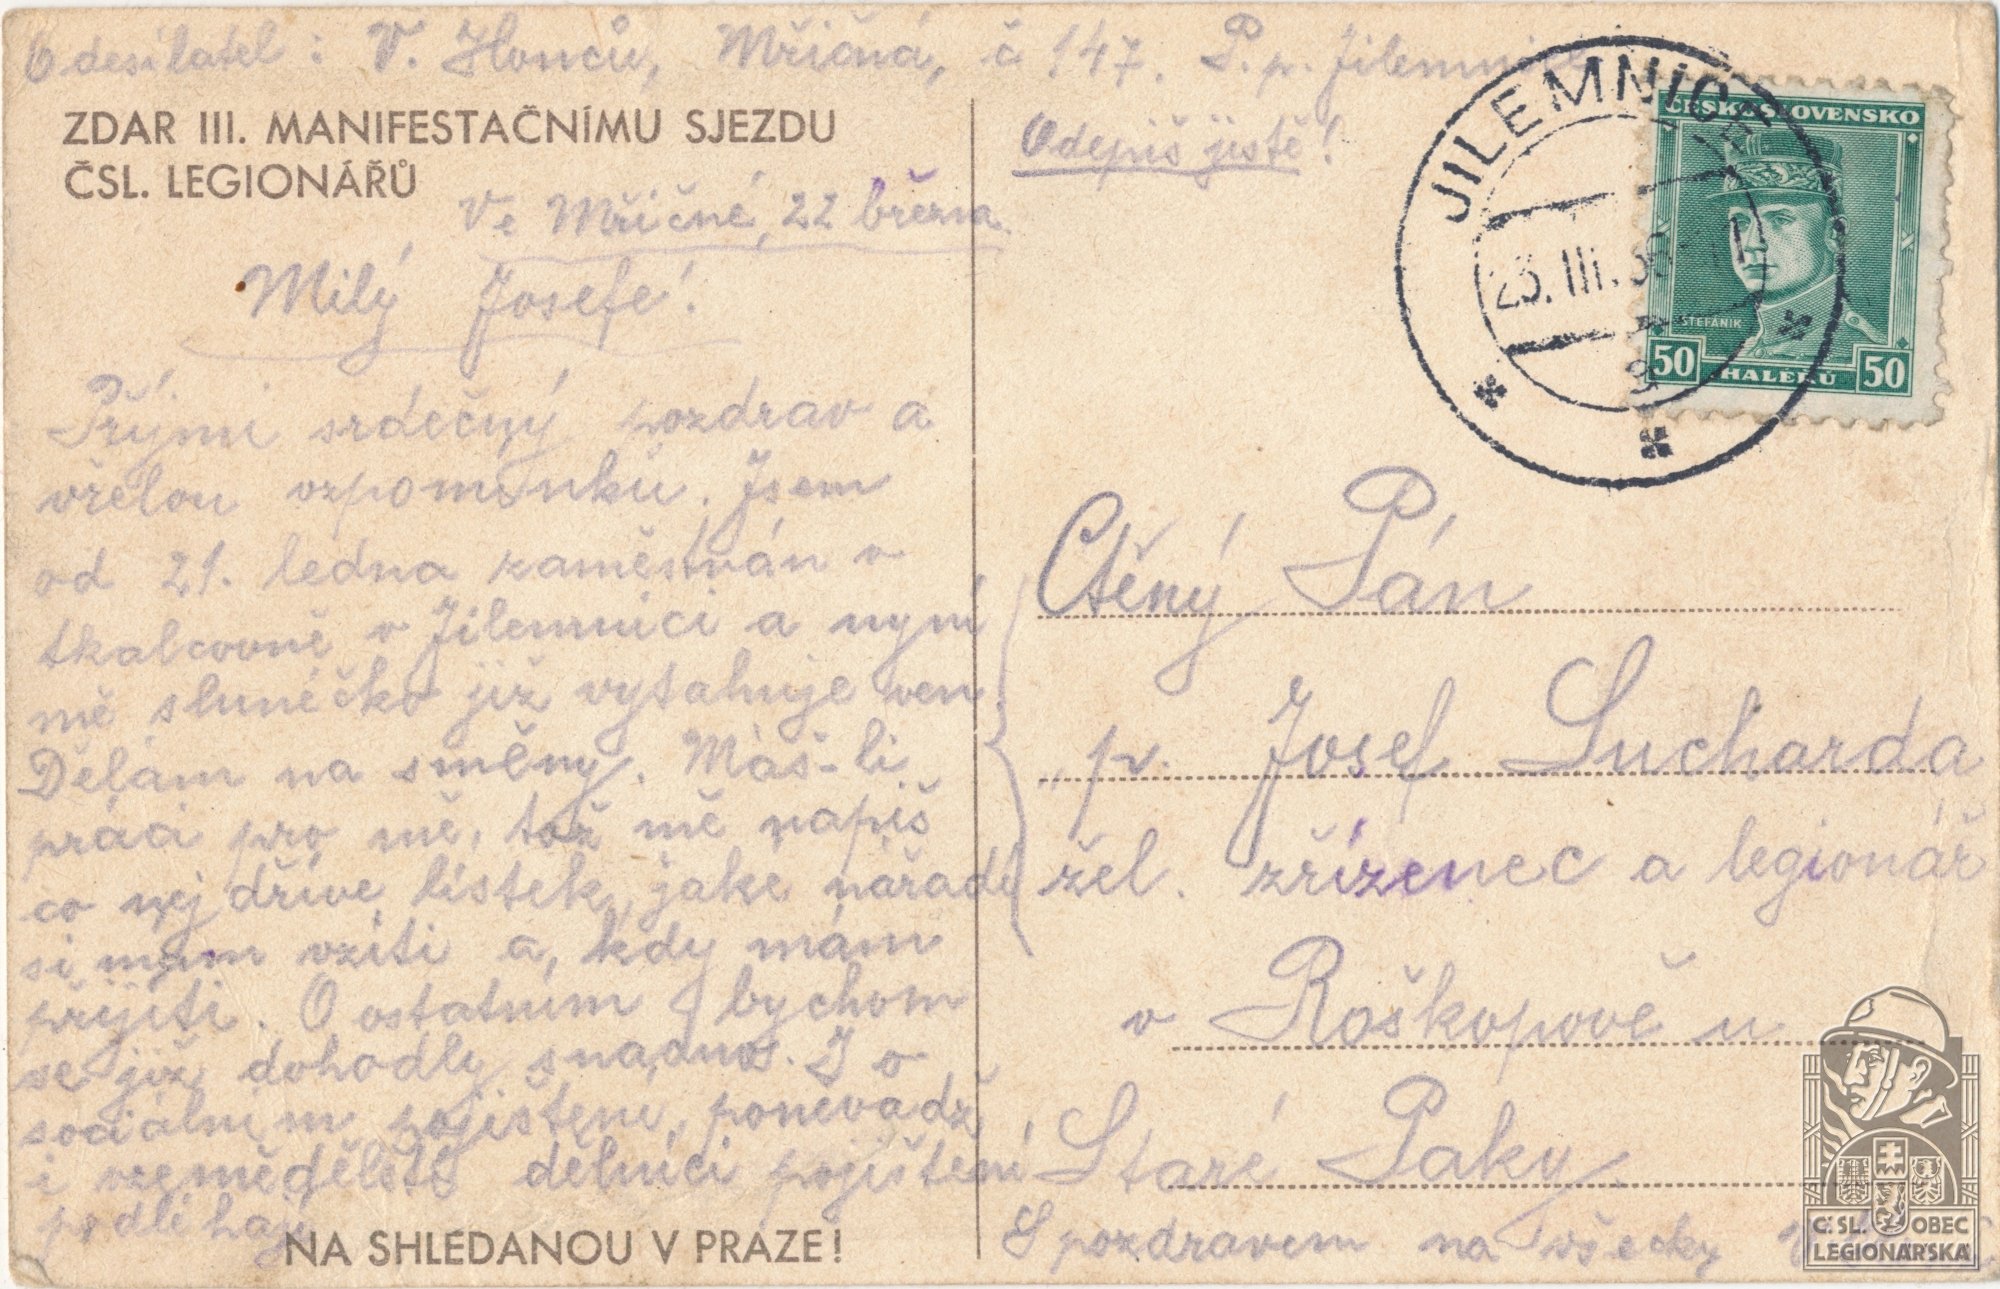 Odesílatel: V. Honců, Mříčná, č 147. P. p. Jilemnice
ZDAR III. MANIFESTAČNÍMU SJEZDU
ČSL. LEGIONÁŘŮ
Odepiš jistě!
Ve Mříčné, 22 března.
Milý Josefe!
Přijmi srdečný pozdrav a
vřelou vzpomínku. Jsem
od 21. ledna zaměstnán v
tkalcovně v Jilemnici a nyní
mě sluníčko již vytahuje ven.
Dělám na směny. Máš-li
práci pro mě, tož mě napiš
co nejdříve lístek, jaké nářadí
si mám vzíti a, kdy mám
přijíti. O ostatním bychom
se již dohodly snadno. I o
sociálním pojištění, poněvadž
i vzemědělstė dělníci pojištění
podléhají
NA SHLEDANOU V PRAZE!
JILEMNICE
23. III. 36
ČESKOSLOVENSKO
ŠTEFÁNIK
50 HALÉŘŮ 50
Ctěný Pán
p. Josef Sucharda
žel. zřízenec a legionář
v Roškopově u
Staré Paky.
S pozdravem na všecky
ČSL. OBEC
LEGIONÁŘSKÁ